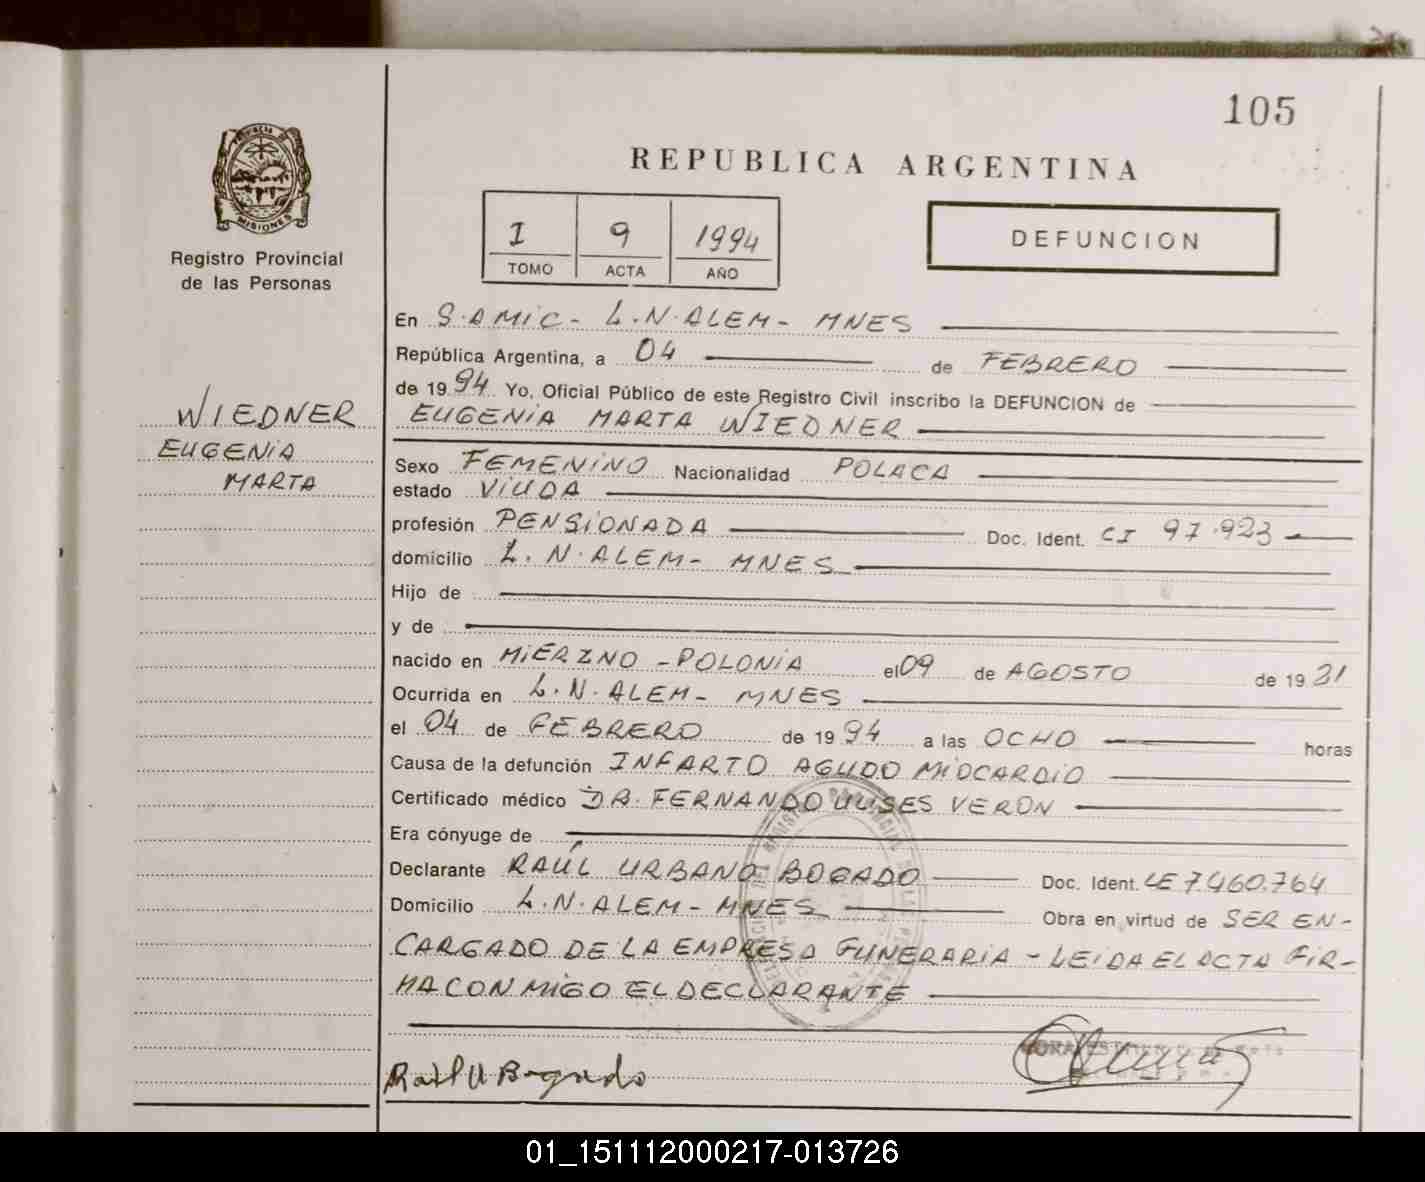 105
REPUBLICA ARGENTINA
PROVINCIA DE
MISIONES
Registro Provincial
de las Personas
I 9 1994
TOMO ACTA AÑO
DEFUNCION
WIEDNER
EUGENIA
MARTA
En S.AMIC- L.N.ALEM- MNES
República Argentina, a 04 de FEBRERO
de 1994 Yo, Oficial Público de este Registro Civil inscribo la DEFUNCION de
EUGENIA MARTA WIEDNER
Sexo FEMENINO Nacionalidad POLACA
estado VIUDA
profesión PENSIONADA Doc. Ident. CI 97.923
domicilio L.N.ALEM- MNES
Hijo de
y de
nacido en MIERZNO - POLONIA el 09 de AGOSTO de 19
Ocurrida en L.N.ALEM- MNES
el 04 de FEBRERO de 1994 a las OCHO horas
Causa de la defunción INFARTO AGUDO MIOCARDIO
Certificado médico DR. FERNANDO ULISES VERON
Era cónyuge de
Declarante RAÚL URBANO BOGADO Doc. Ident. LE 7.460.764
Domicilio L.N.ALEM- MNES Obra en virtud de SER EN-
CARGADO DE LA EMPRESA FUNERARIA - LEIDA EL ACTA FIR-
MA CONMIGO EL DECLARANTE
Raúl U Bogado
01_151112000217-013726